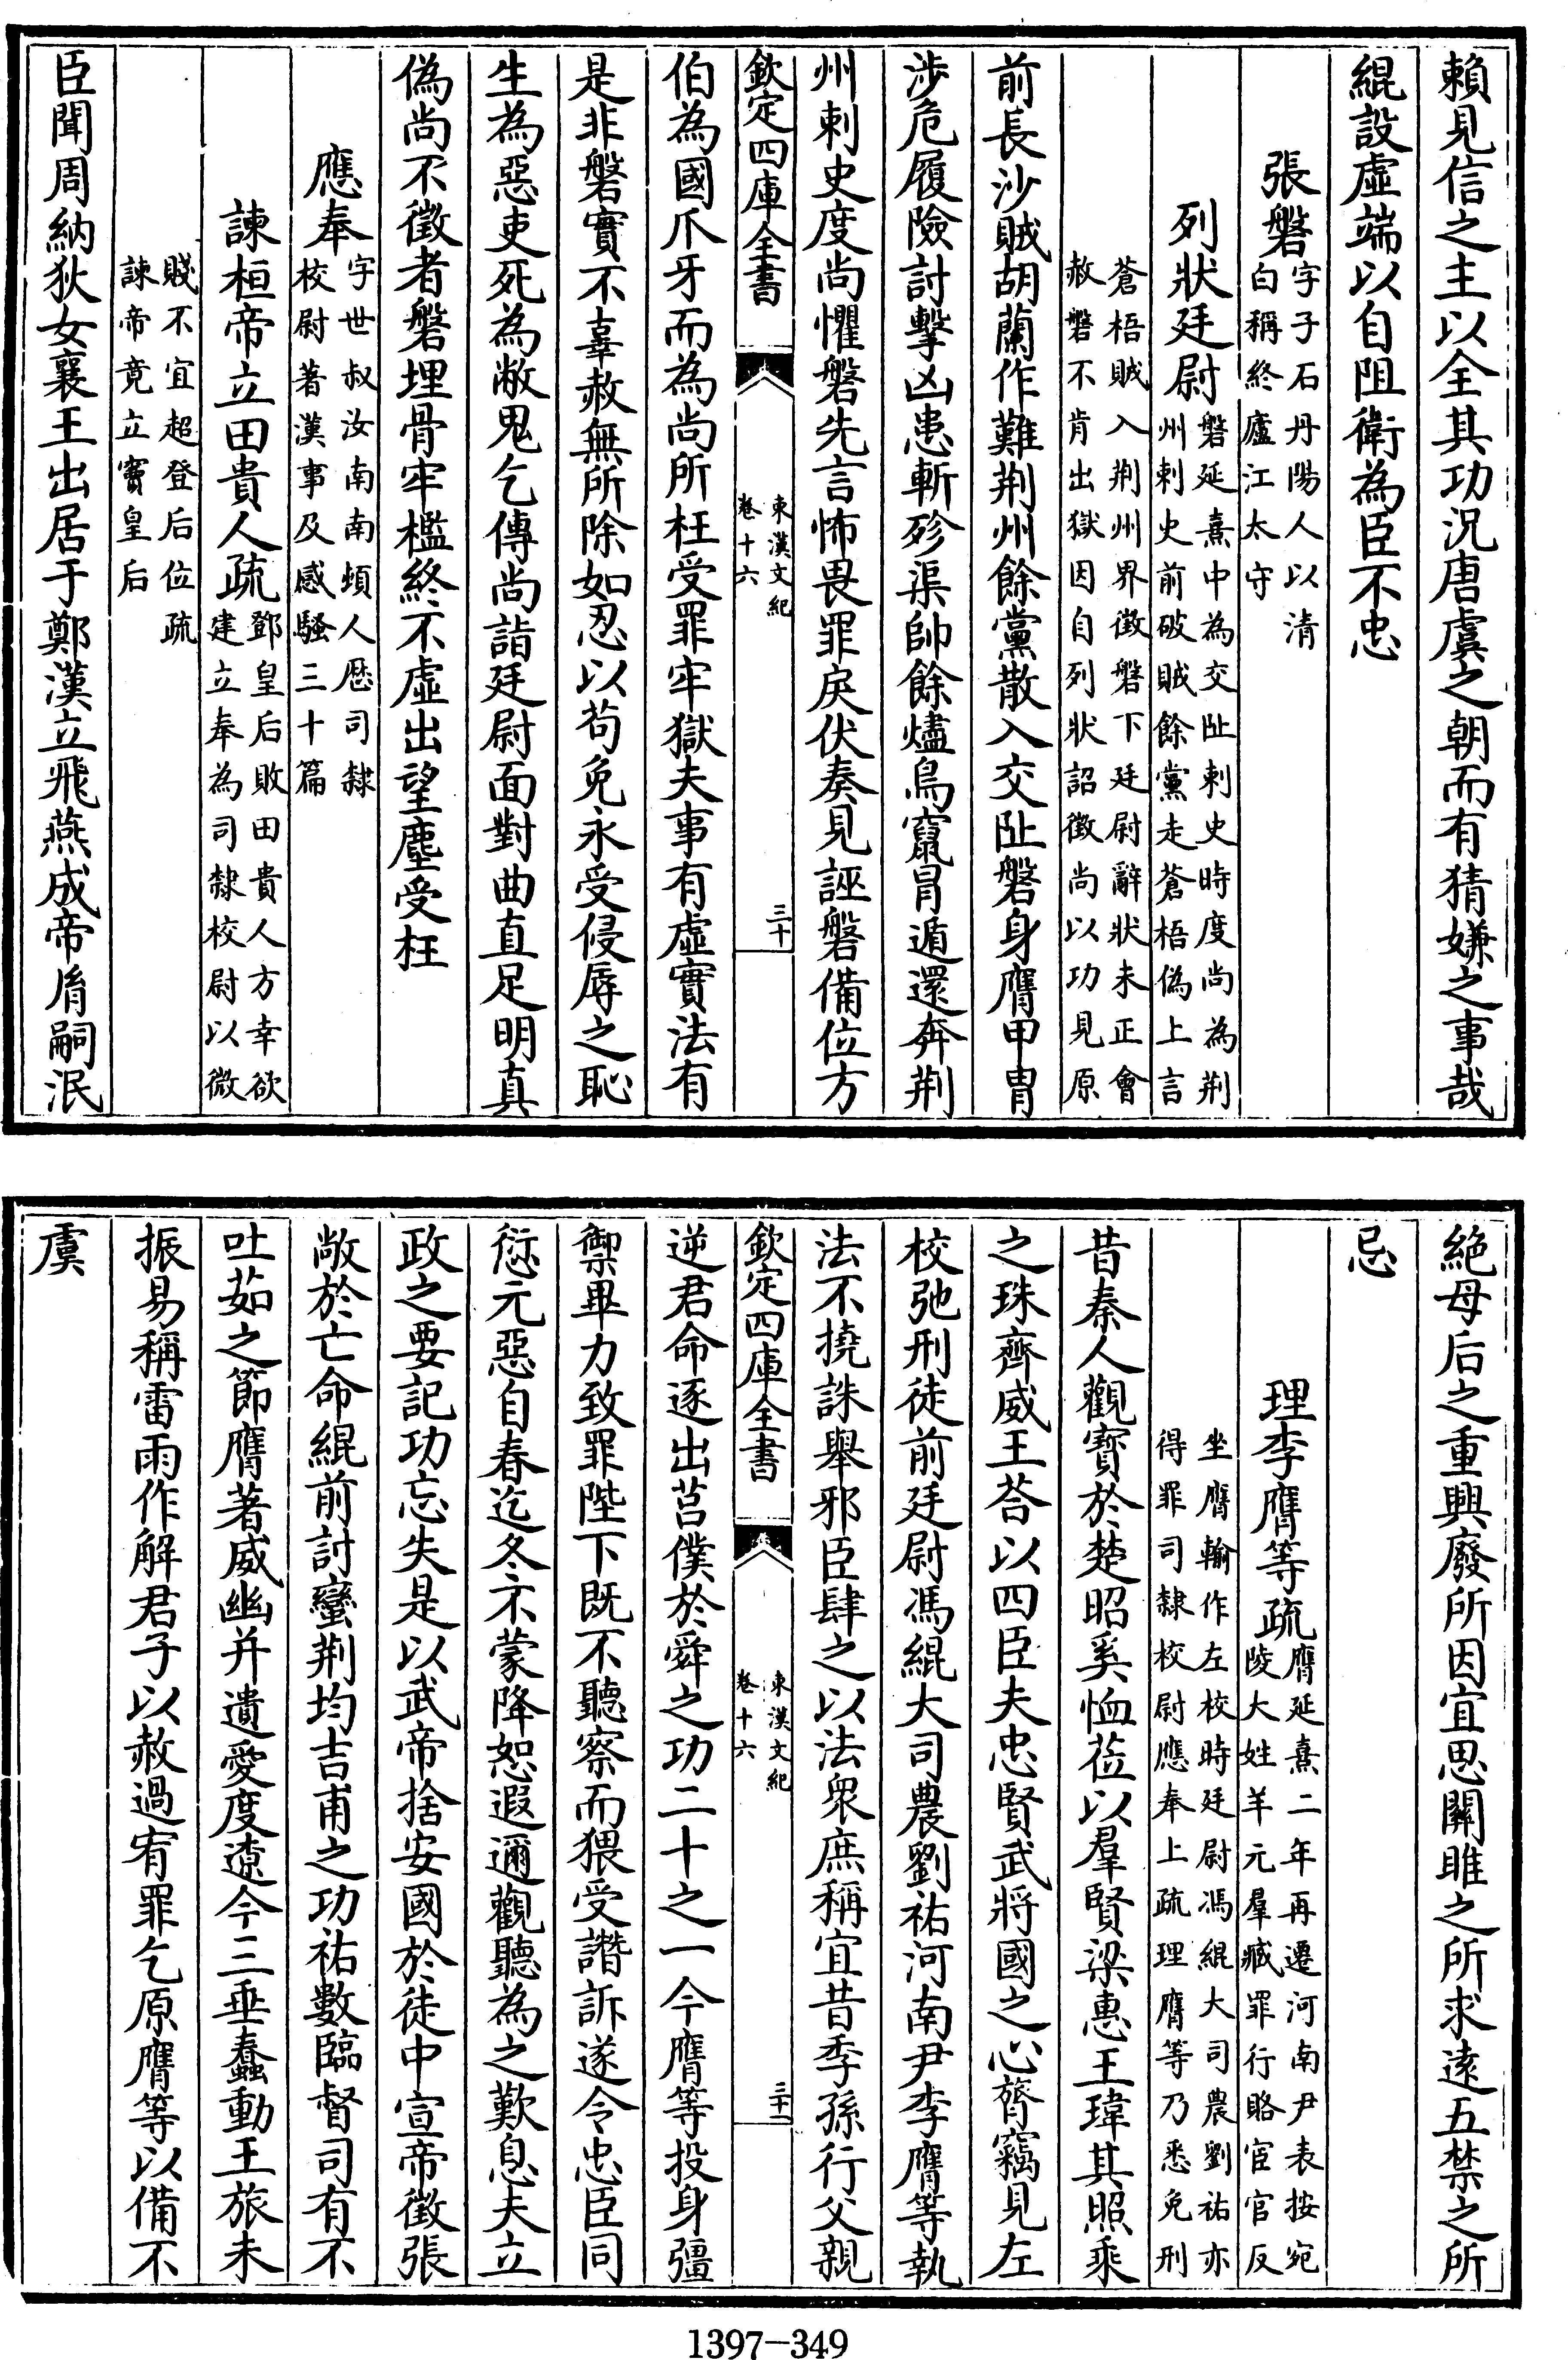 賴見信之主以全其功況唐虞之朝而有猜嫌之事哉
緄設虛端以自阻衛為臣不忠
張磐字子石丹陽人以清
白稱終廬江太守
列狀廷尉磐延熹中為交阯刺史時度尚為荆
州刺史前破賊餘黨走蒼梧偽上言
蒼梧賊入荆州界徵磐下廷尉辭狀未正會
赦磐不肯出獄因自列狀詔徵尚以功見原
前長沙賊胡蘭作難荆州餘黨散入交阯磐身膺甲胄
涉危履險討擊凶患斬殄渠帥餘燼鳥竄冒遁還奔荆
州刺史度尚懼磐先言怖畏罪戾伏奏見誣磐備位方
欽定四庫全書
東漢文紀
卷十六
三十
伯為國爪牙而為尚所枉受罪牢獄夫事有虛實法有
是非磐實不辜赦無所除如忍以苟免永受侵辱之恥
生為惡吏死為敝鬼乞傳尚詣廷尉面對曲直足明真
偽尚不徵者磐埋骨牢檻終不虛出望塵受枉
應奉字世叔汝南南頓人歷司隸
校尉著漢事及感騷三十篇
諫桓帝立田貴人疏鄧皇后敗田貴人方幸欲
建立奉為司隸校尉以微
賤不宜超登后位疏
諫帝竟立竇皇后
臣聞周納狄女襄王出居于鄭漢立飛燕成帝胤嗣泯
絕母后之重興廢所因宜思關雎之所求遠五禁之所
忌
理李膺等疏膺延熹二年再遷河南尹表按宛
陵大姓羊元羣臧罪行賂宦官反
坐膺輸作左校時廷尉馮緄大司農劉祐亦
得罪司隸校尉應奉上疏理膺等乃悉免刑
昔秦人觀寶於楚昭奚恤莅以羣賢梁惠王瑋其照乘
之珠齊威王荅以四臣夫忠賢武將國之心膂竊見左
校弛刑徒前廷尉馮緄大司農劉祐河南尹李膺等執
法不撓誅舉邪臣肆之以法衆庶稱宜昔季孫行父親
欽定四庫全書
東漢文紀
卷十六
三十一
逆君命逐出莒僕於舜之功二十之一今膺等投身彊
禦畢力致罪陛下既不聽察而猥受譖訴遂令忠臣同
愆元惡自春迄冬不蒙降恕遐邇觀聽為之歎息夫立
政之要記功忘失是以武帝捨安國於徒中宣帝徵張
敞於亡命緄前討蠻荆均吉甫之功祐數臨督司有不
吐茹之節膺著威幽并遺愛度遼今三垂蠢動王旅未
振易稱雷雨作解君子以赦過宥罪乞原膺等以備不
虞
1397-349